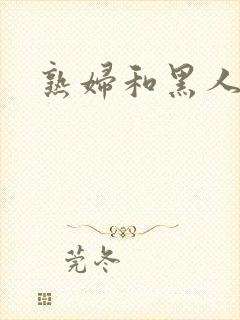 熟婦和黑人
莞冬